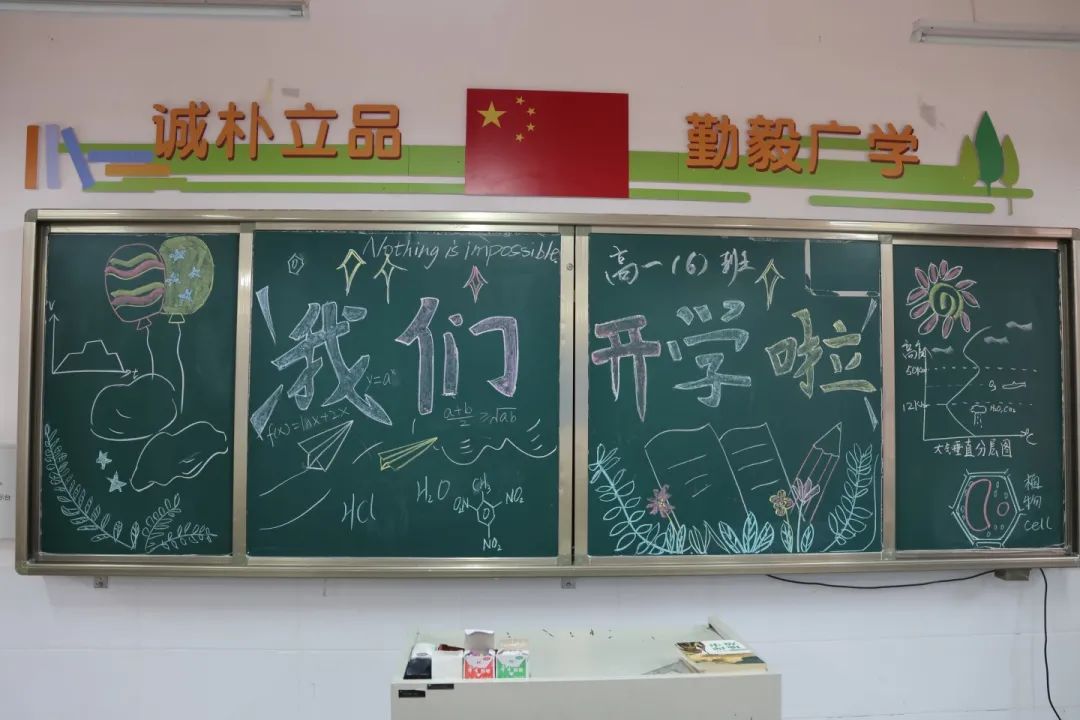 诚朴立品
勤毅广学
Nothing is impossible
高一(6)班
我们
开学啦
y=aˣ
f(x)=lnx+2x
a+b/2 ≥√ab
HCl
H₂O
CH₃
O₂N
NO₂
NO₂
v
t
高度
50km
O₃
12km
H₂O,CO₂
℃
大气垂直分层图
植物
cell